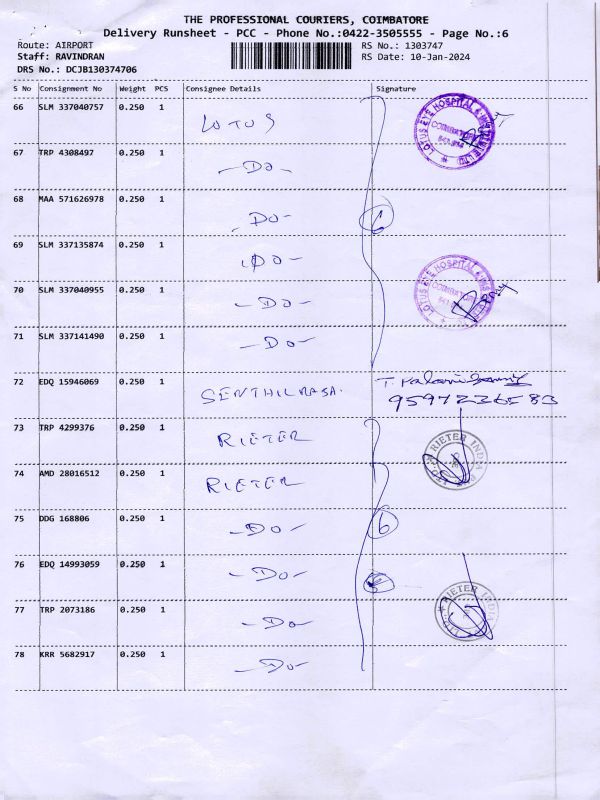 THE PROFESSIONAL COURIERS, COIMBATORE
Delivery Runsheet - PCC - Phone No.:0422-3505555 - Page No.:6
Route: AIRPORT RS No.: 1303747
Staff: RAVINDRAN RS Date: 10-Jan-2024
DRS No.: DCJB130374706
S No Consignment No Weight PCS Consignee Details Signature
66 SLM 337040757 0.250 1 LOTUS
LOTUS EYE HOSPITAL COIMBATORE
67 TRP 4308497 0.250 1 -Do-
68 MAA 571626978 0.250 1 Do- 6
69 SLM 337135874 0.250 1 Do-
70 SLM 337040955 0.250 1 -Do-
LOTUS EYE HOSPITAL COIMBATORE
71 SLM 337141490 0.250 1 -Do-
72 EDQ 15946069 0.250 1 SENTHIL
73 TRP 4299376 0.250 1 RIETER
RIETER INDIA
74 AMD 28016512 0.250 1 RIETER
75 DDG 168806 0.250 1 -Do- 6
76 EDQ 14993059 0.250 1 -Do-
77 TRP 2073186 0.250 1 -Do-
RIETER INDIA
78 KRR 5682917 0.250 1 -Do-